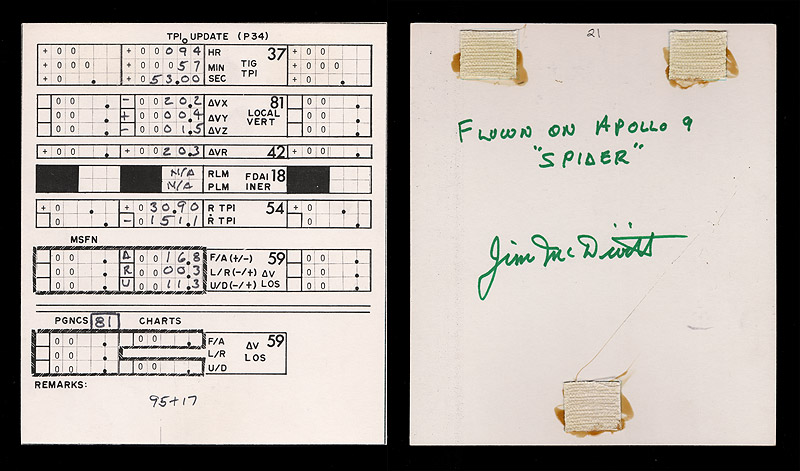 TPI UPDATE (P34)
+ 0 0 + 0 0 0 9 4 HR 37 + 0 0
+ 0 0 0 + 0 0 0 5 7 MIN TIG + 0 0 0
+ 0 . + 0 5 3.0 0 SEC TPI + 0 .
0 0 . - 0 0 2 0.2 ΔVX 81 0 0 .
0 0 . + 0 0 0 0.4 ΔVY LOCAL 0 0 .
0 0 . - 0 0 0 1.5 ΔVZ VERT 0 0 .
+ 0 0 . + 0 0 2 0.3 ΔVR 42 + 0 0 .
N/A RLM FDAI 18
N/A PLM INER
+ 0 . + 0 3 0.9 0 R TPI 54 + 0 .
0 . - 0 1 5 1.1 Ṙ TPI 0 .
MSFN
0 0 . A 0 0 1 6.8 F/A (+/-) 59 0 0 .
0 0 . R 0 0 0 0.3 L/R (-/+) ΔV 0 0 .
0 0 . U 0 0 1 1.3 U/D (-/+) LOS 0 0 .
PGNCS 81 CHARTS
0 0 . 0 0 . F/A ΔV 59
0 0 . L/R LOS
0 0 . 0 0 . U/D
REMARKS:
95+17
21
FLOWN ON APOLLO 9
"SPIDER"
Jim McDivitt